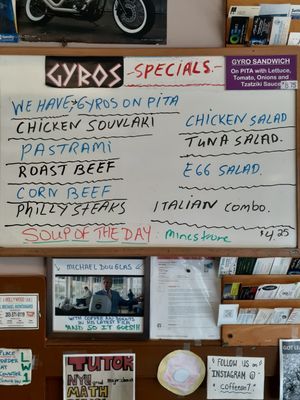 GYROS
-SPECIALS.-
GYRO SANDWICH
On PITA with Lettuce,
Tomato, Onions and
Tzatziki Sauce
WE HAVE GYROS ON PITA
CHICKEN SOUVLAKI
CHICKEN SALAD
PASTRAMI
TUNA SALAD.
ROAST BEEF
EGG SALAD.
CORN BEEF
PHILLY STEAKS
ITALIAN COMBO.
SOUP OF THE DAY: Minestrone
$4.25
MICHAEL DOUGLAS
AND SO IT GOES!!!
PLACE
ORDER
AT
COUNTER
TUTOR
NYU
MATH
FOLLOW US
ON
INSTAGRAM @
coffeenat7
GOT